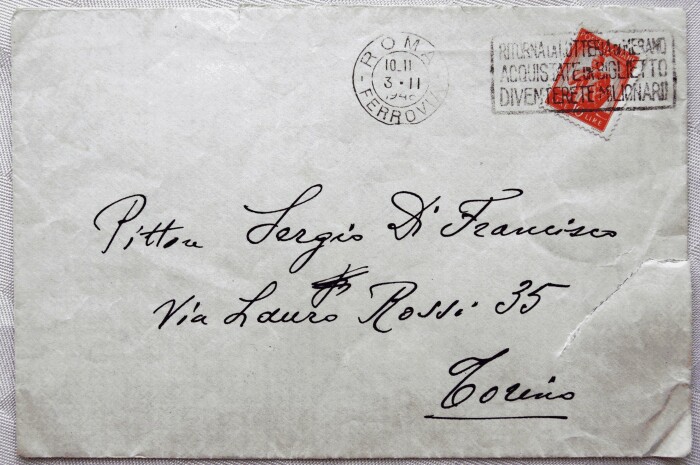 ROMA
FERROVIA
10.11
3·11
1948
RITORNA LA LOTTERIA DI MERANO
ACQUISTATE UN BIGLIETTO
DIVENTERETE MILIONARI!
10 LIRE
Pittore Sergio Di Francisco
Via Lauro Rossi 35
Torino